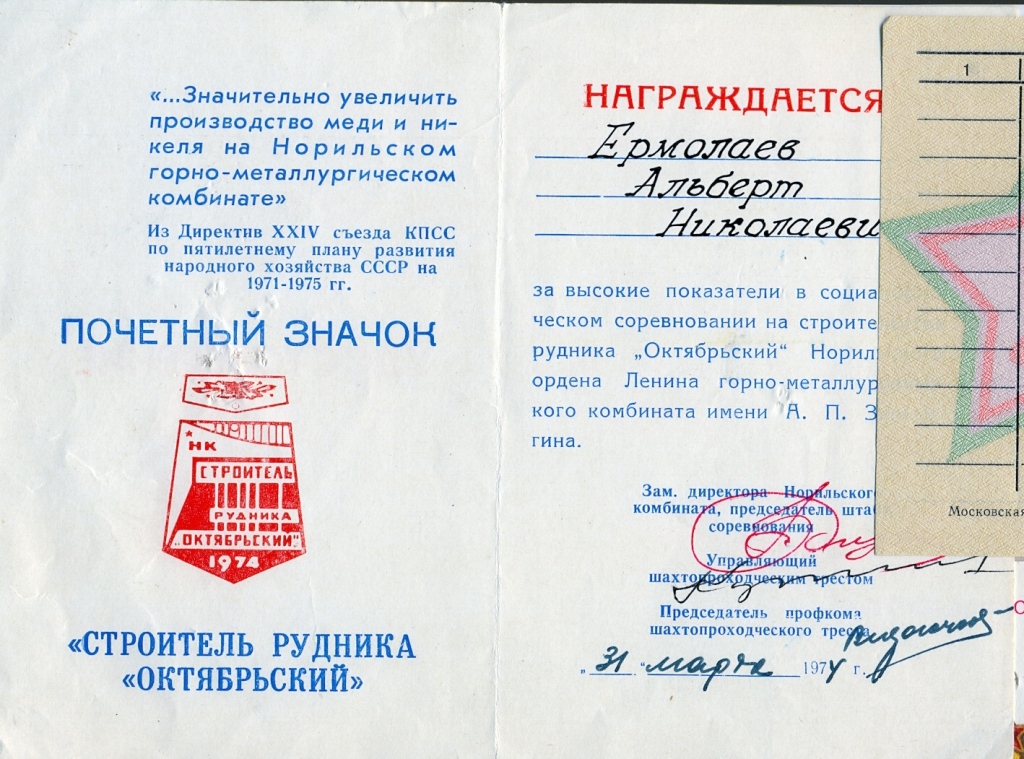 «...Значительно увеличить
производство меди и ни-
келя на Норильском
горно-металлургическом
комбинате»
Из Директив XXIV съезда КПСС
по пятилетнему плану развития
народного хозяйства СССР на
1971-1975 гг.
ПОЧЕТНЫЙ ЗНАЧОК
НК
СТРОИТЕЛЬ
РУДНИКА
„ОКТЯБРЬСКИЙ"
1974
«СТРОИТЕЛЬ РУДНИКА
«ОКТЯБРЬСКИЙ»
НАГРАЖДАЕТСЯ
Ермолаев
Альберт
Николаеви
за высокие показатели в социа
ческом соревновании на строите
рудника „Октябрьский" Норил
ордена Ленина горно-металлур
кого комбината имени А. П. З
гина.
Зам. директора Норильского
комбината, председатель штаба
соревнования
Управляющий
шахтопроходческим трестом
Председатель профкома
шахтопроходческого треста
„31" марта 1974 г.
1
Московская